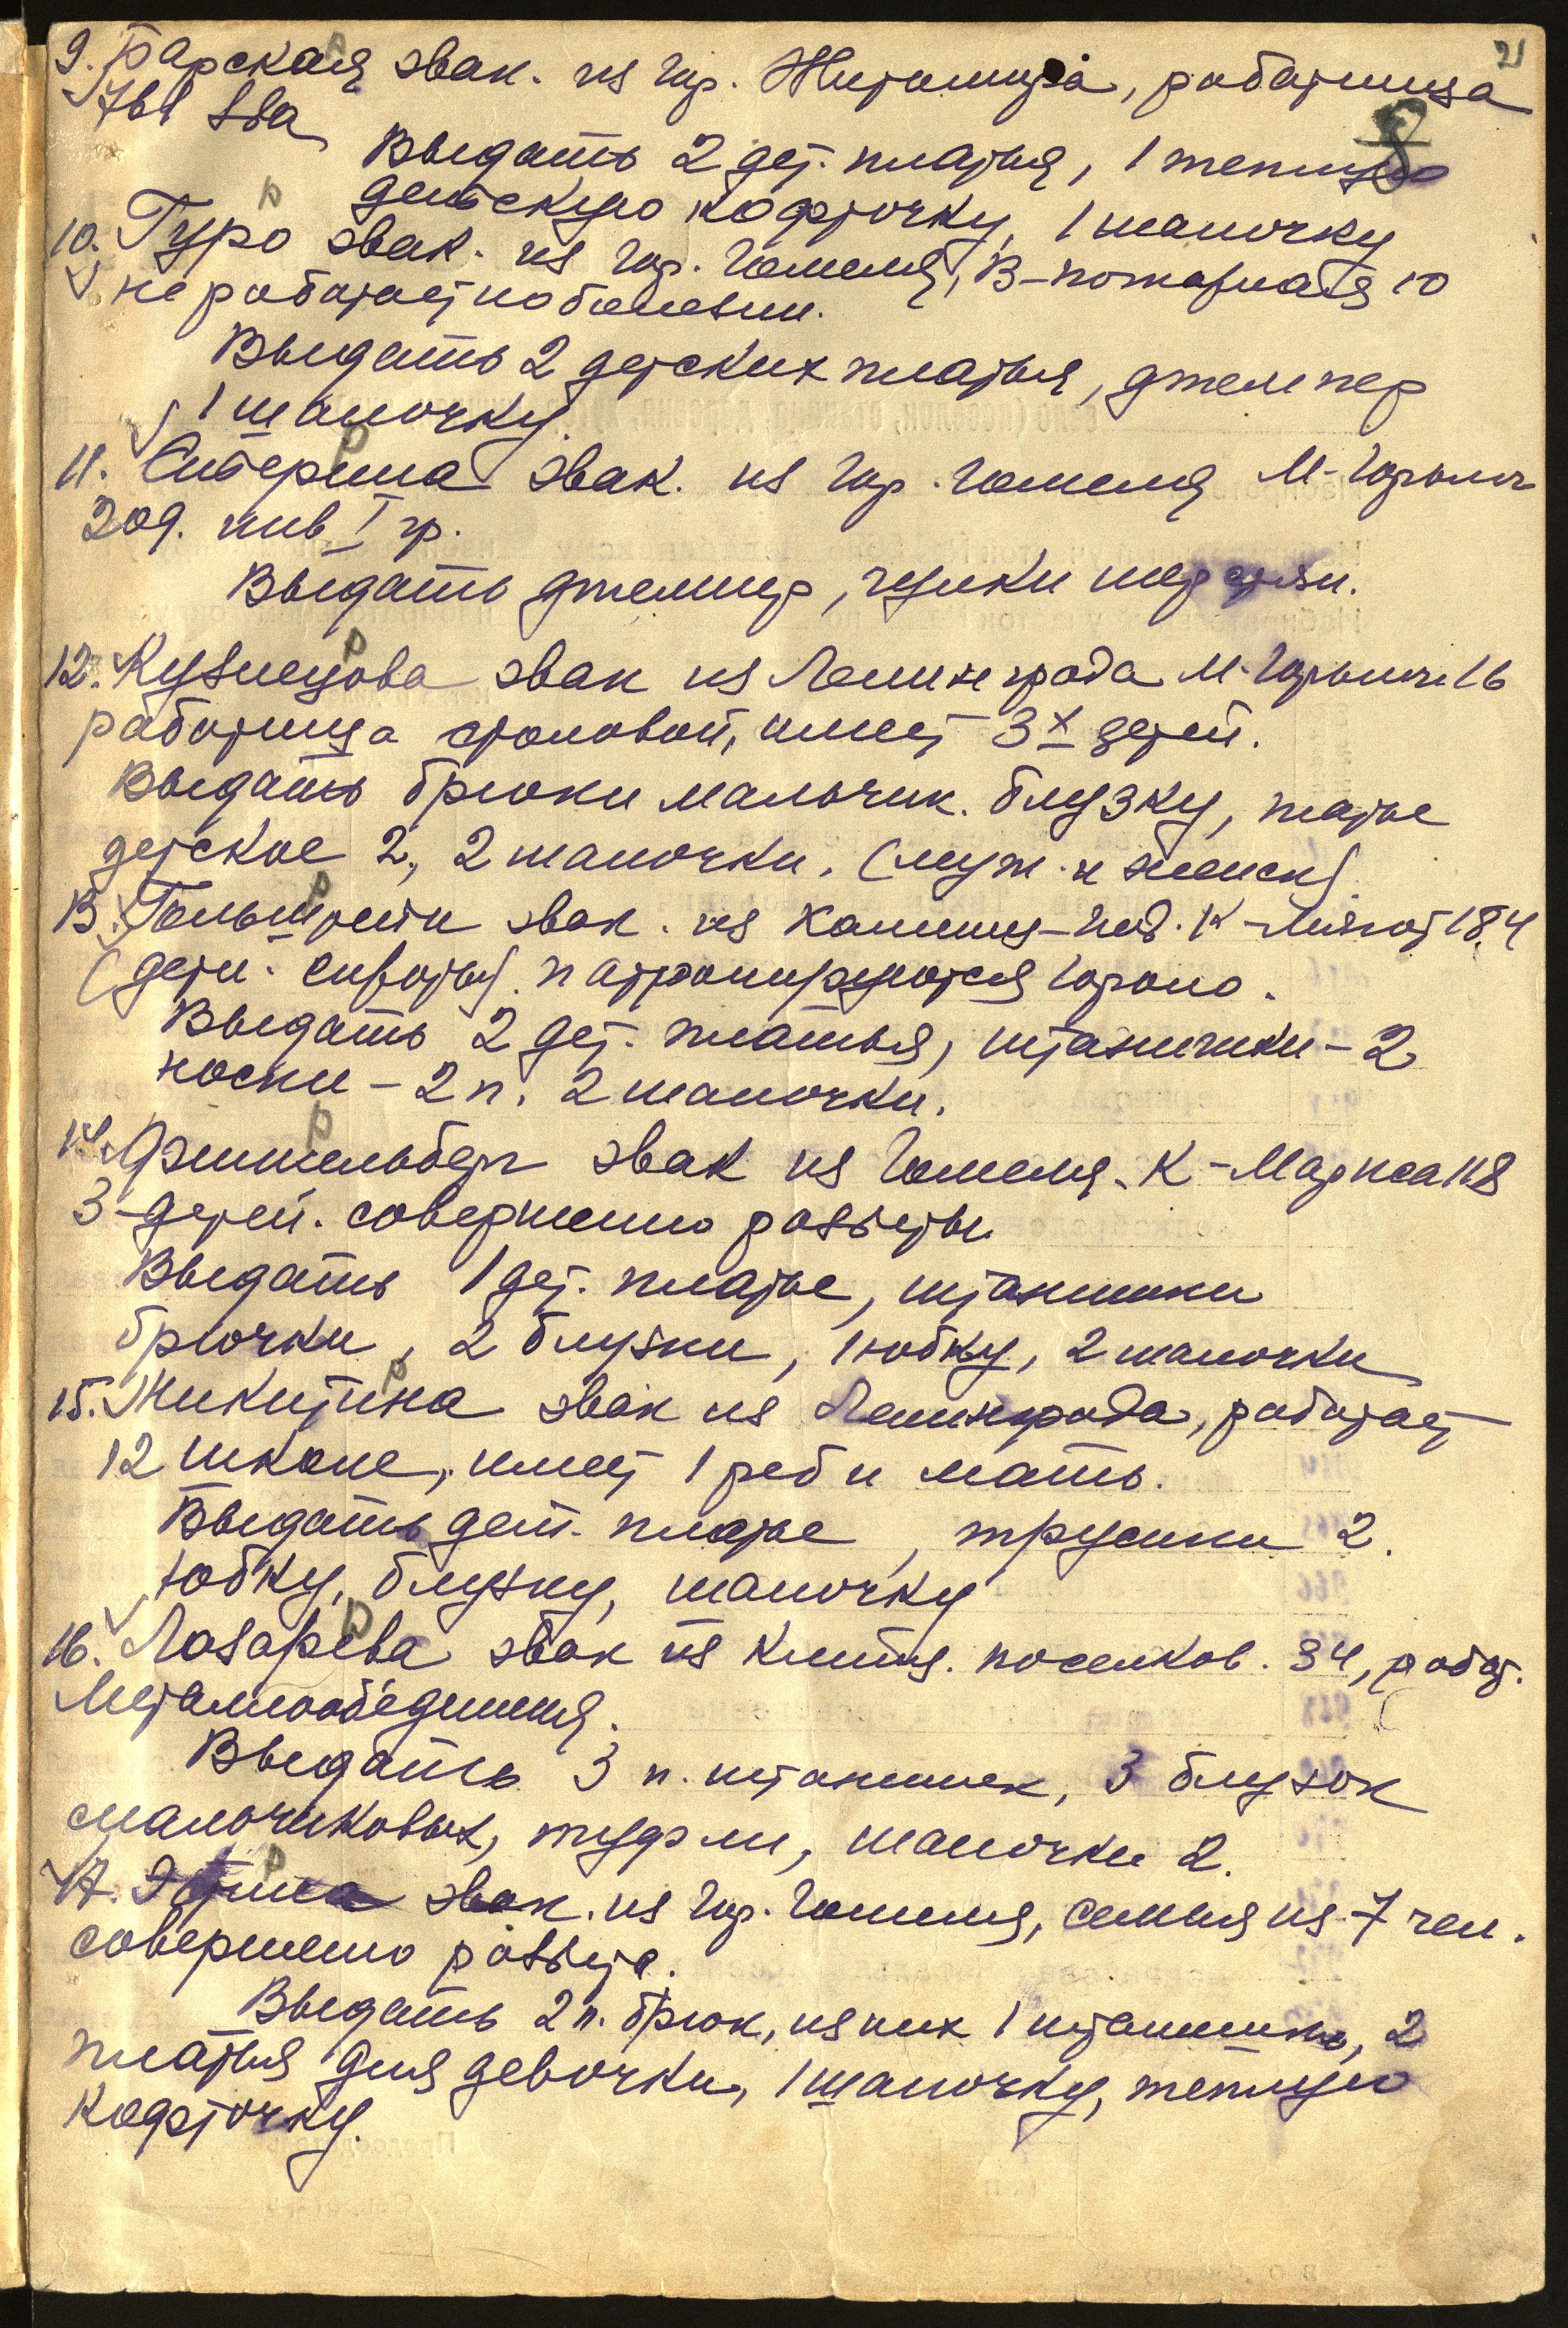 21
8
9. Барская эвак. из гор. Житомира, работница
Выдать 2 дет. платья, 1 теплую
детскую кофточку, 1 шапочку
10. Гуро эвак. из гор. Гомеля, В-пожарная 10
не работает по болезни.
Выдать 2 детских платья, джемпер
1 шапочку.
11. эвак. из гор. Гомеля М-Горького
209. инв I гр.
Выдать джемпер, чулки шерстян.
12. Кузнецова эвак из Ленинграда М-Горького 16
работница столовой, имеет 3х детей.
Выдать брюки мальчик. блузку, платье
детское 2, 2 шапочки. (муж. и женск).
13. эвак. из К-Либкнехт 184
(дети-сироты). патронируются Гороно.
Выдать 2 дет. платья, штанишки-2
носки-2 п. 2 шапочки.
14. эвак из Гомеля. К-Маркса 118
3-детей. совершенно раздеты
Выдать 1 дет. платье, штанишки
брючки, 2 блузки, 1 юбку, 2 шапочки
15. Никитина эвак из Ленинграда, работает
12 школе, имеет 1 реб и мать.
Выдать дет. платье, трусики 2.
юбку, блузку, шапочку
16. Лазарева эвак из поселков. 34, работ.
Металлообъединения.
Выдать 3 п. штанишек, 3 блузок
мальчиковых, туфли, шапочки 2.
17. эвак. из гор. Гомеля, семья из 7 чел.
совершенно раздета.
Выдать 2 п. брюк, из них 1 штанишки, 2
платья для девочки, 1 шапочку, теплую
кофточку.